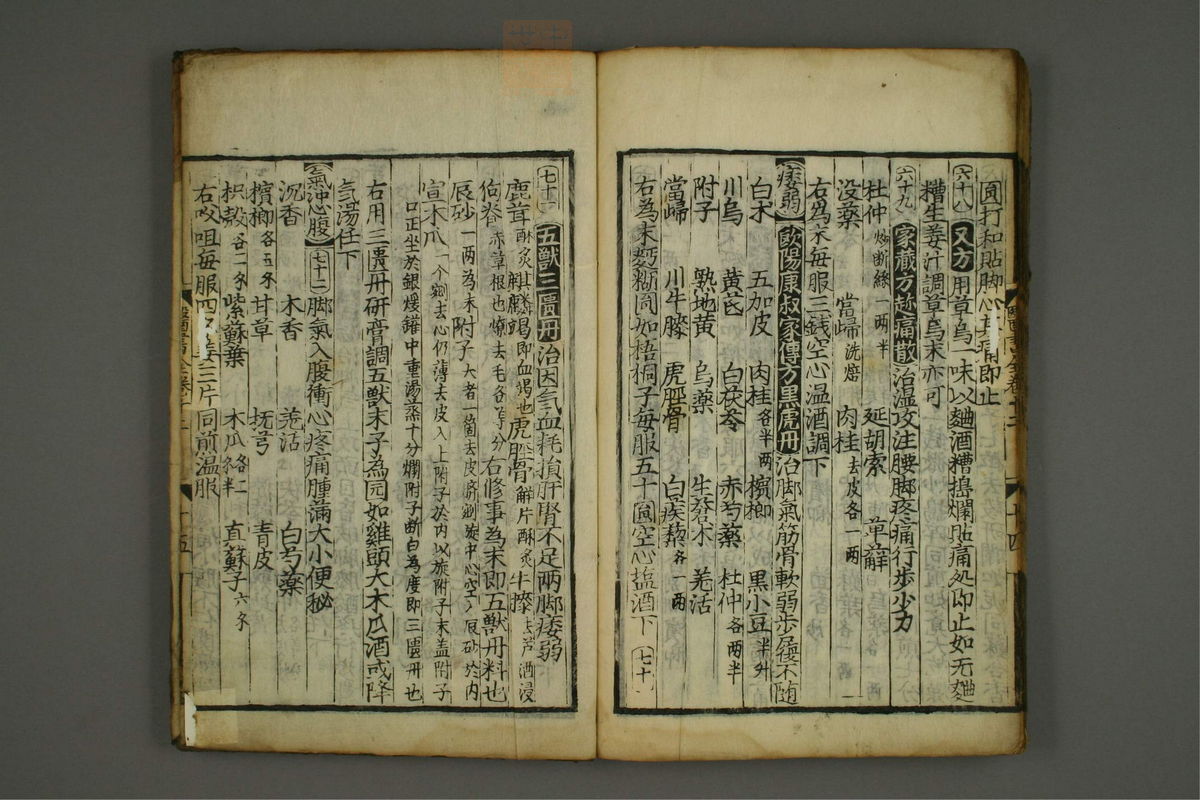 圓打和貼脚心其痛即止
六十八 又方 用草烏一味以麯酒糟搗爛貼痛処即止如无麯
糟生姜汁調草烏末亦可
六十九 家藏方趂痛散 治温攻注腰脚疼痛行歩少力
杜仲 炒断絲一两半 延胡索 萆薢
没藥 當歸 洗焙 肉桂 去皮各一两
右為末每服三錢空心温酒調下
痿弱 歐陽康叔家傳方黑虎丹 治脚氣筋骨軟弱歩履不随
白术 五加皮 肉桂 各半两 檳榔 黒小豆 半升
川烏 黄芪 白茯苓 赤芍藥 杜仲 各两半
附子 熟地黄 烏藥 生蒼术 羌活
當歸 川牛膝 虎脛骨 白蒺蔾 各一两
右為末麪糊同如梧桐子每服五十圓空心塩酒下 七十
十四
七十一 五獸三匱丹 治因气血耗損肝腎不足两脚痿弱
鹿茸 酥炙 麒麟竭 即血竭也 虎脛骨 解片酥炙 牛膝 去芦酒浸
狗脊 赤草根也燎去毛各等分 右修事為末即五獸丹料也
辰砂 一两為末 附子 大者一箇去皮臍剜旋中心空入辰砂於内
宣木瓜 一个剜去心仍薄去皮入上附子於内以旋附子末盖附子
口正坐於銀煖鑵中重湯蒸十分爛附子断白為度即三匱丹也
右用三匱丹研膏調五獸末子為园如雞頭大木瓜酒或降
气湯任下
氣冲心腹 七十二 脚氣入腹衝心疼痛腫滿大小便秘
沉香 木香 羌活 白芍藥
檳榔 各五 甘草 抚芎 青皮
枳殻 各二 紫蘇葉 木瓜 各二 半 真蘇子 六
右㕮咀每服四 姜三片同煎温服
十五